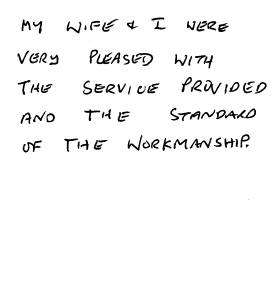 MY WIFE & I WERE
VERY PLEASED WITH
THE SERVICE PROVIDED
AND THE STANDARD
OF THE WORKMANSHIP.